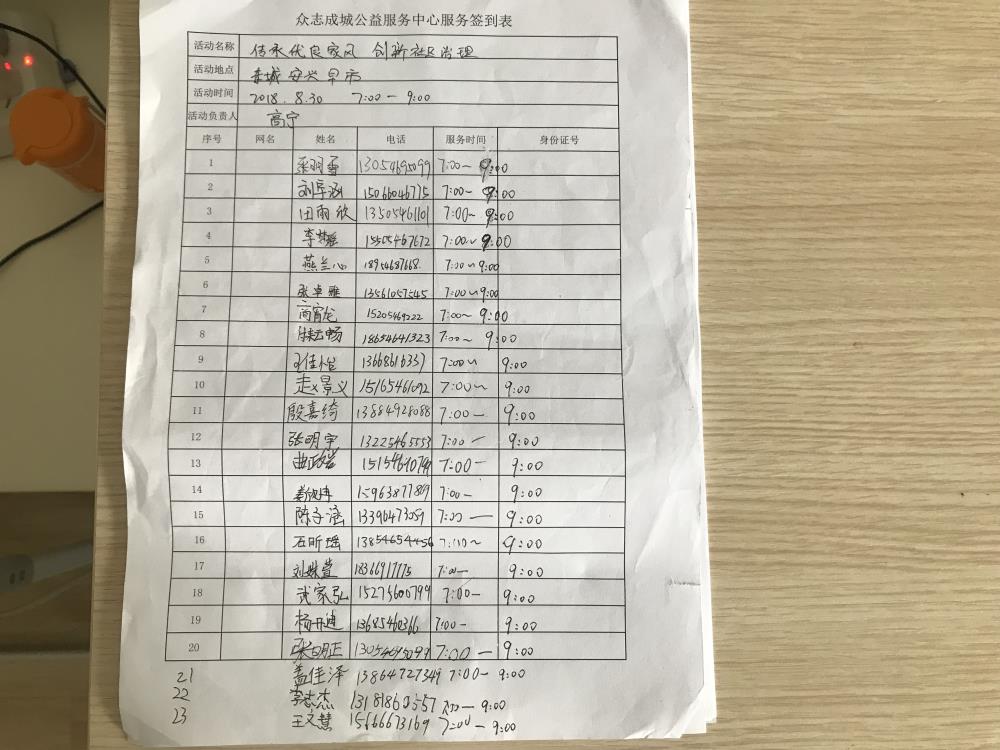 众志成城公益服务中心服务签到表
活动名称 传承优良家风 创新社区治理
活动地点 东城安兴早市
活动时间 2018.8.30 7:00—9:00
活动负责人 高宁
序号 网名 姓名 电话 服务时间 身份证号
1 13054695099 7:00~9:00
2 15066046775 7:00~9:00
3 田雨欣 13505461101 7:00~9:00
4 15505467672 7:00~9:00
5 燕兰心 18954687668. 7:00~9:00
6 张卓雅 13561057545 7:00~9:00
7 15205469222 7:00~9:00
8 18654641323 7:00~9:00
9 王佳怡 13668616337 7:00~9:00
10 赵景义 15165461092 7:00~9:00
11 殷嘉绮 13884928088 7:00—9:00
12 张明宇 13225465553 7:00—9:00
13 7:00—9:00
14 15963877869 7:00—9:00
15 陈子涵 13396473059 7:00—9:00
16 石昕瑶 13854654456 7:00~9:00
17 刘姝萱 18366917775 7:00—9:00
18 武家弘 15275600799 7:00—9:00
19 杨丹迪 13685460366 7:00—9:00
20 张明正 13054695099 7:00—9:00
21 盖佳泽 13864727349 7:00~9:00
22 李志杰 13181860557 7:00—9:00
23 王文慧 15666673169 7:00—9:00